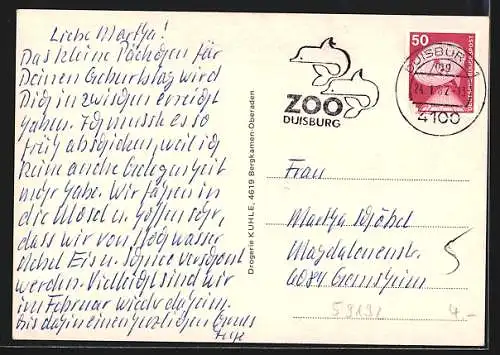 Liebe Martha!
Das kleine Päckchen für
Deinen Geburtstag wird
Dich inzwischen erreicht
haben. Ich musste es so
früh abschicken, weil ich
keine andre Gelegenheit
mehr habe. Wir fahren in
die Mosel u. hoffen sehr,
dass wir von Hochwasser
Nebel Eis u. Schnee verschont
werden. Vielleicht sind wir
im Februar wieder daheim.
Bis dahin einen herzlichen Gruss
Drogerie KUHLE, 4619 Bergkamen-Oberaden
ZOO
DUISBURG
50
DEUTSCHE BUNDESPOST
DUISBURG 1
4100
Frau
Martha
Magdalenenstr. 5
6084 Gernsheim
59191
4.-